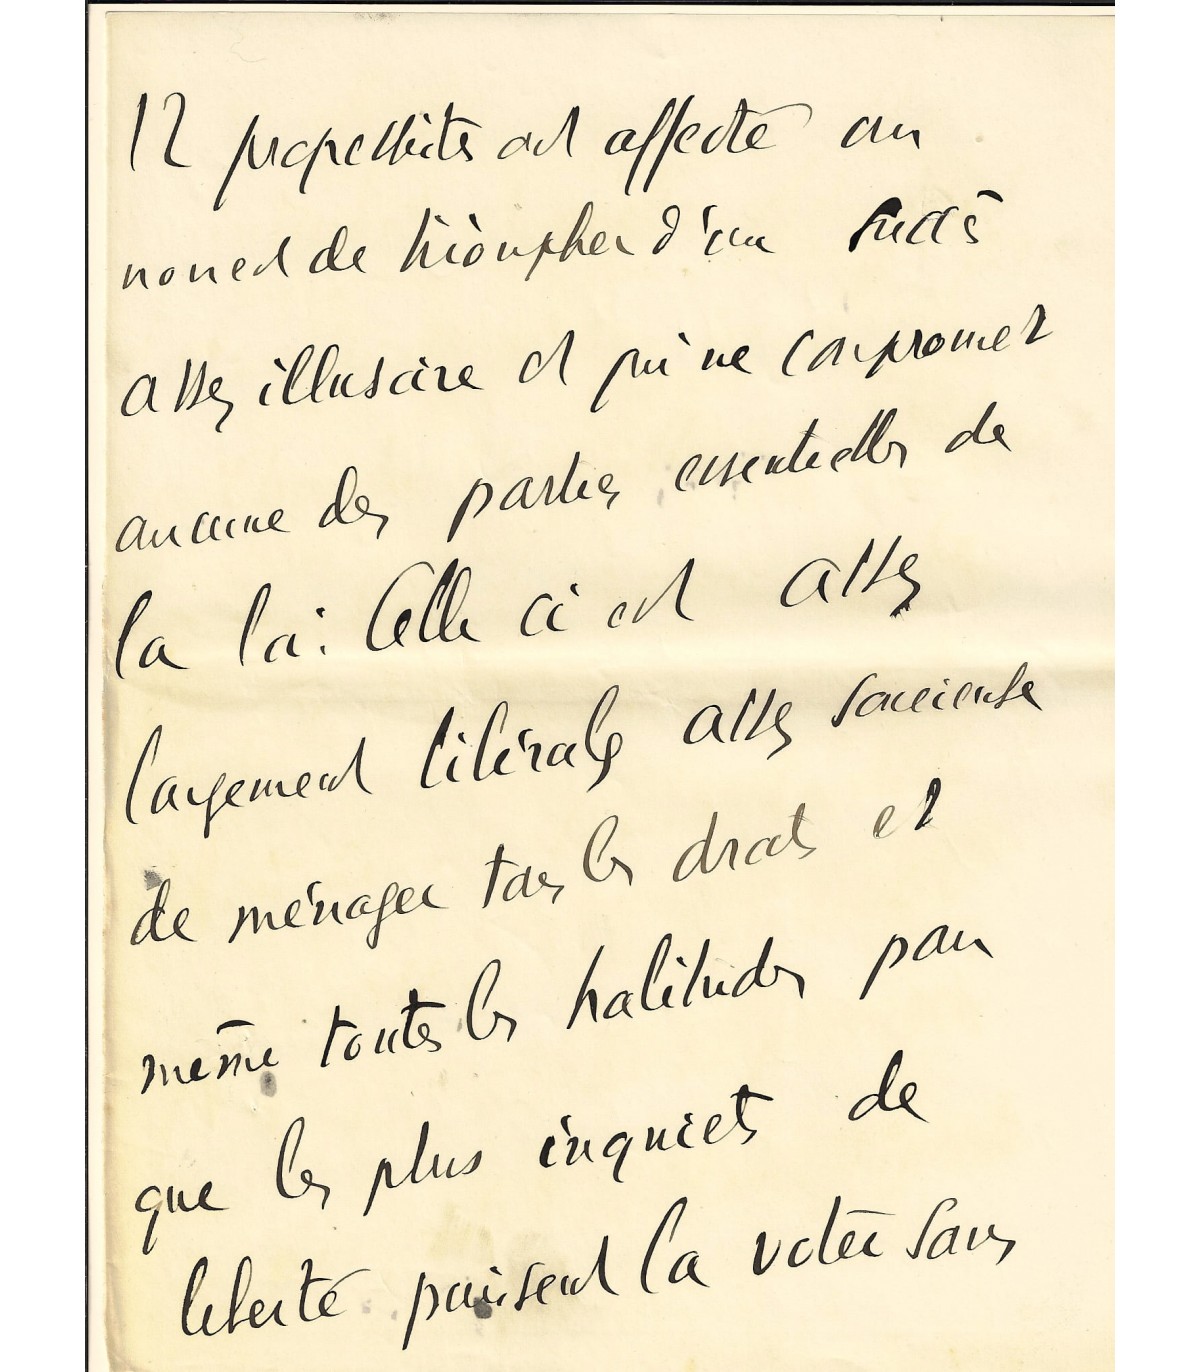 12 propositions ont affecté au
moment de triompher d'un succès
assez illusoire et qui ne compromet
aucune des parties essentielles de
la loi. Celle ci est assez
largement libérale, assez soucieuse
de ménager tous les droits et
même toutes les habitudes pour
que les plus inquiets de
liberté puissent la voter sans